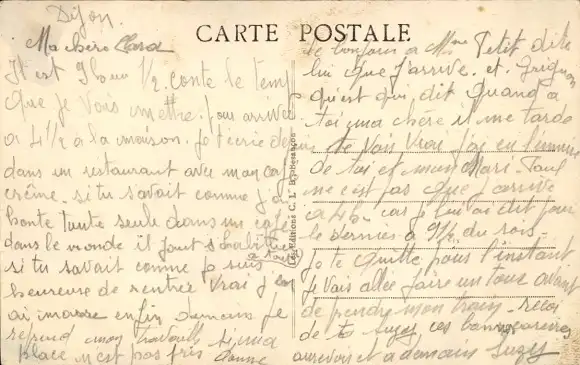 Dijon.
CARTE POSTALE
Ma chère Clara
Il est 9 heur ½. conte le temp
que je vais mettre. pour arriver
a 4 ½ a la maison. Je t'ecrie de
dans un restaurant avec mon caf
crème. si tu savait comme j'ai
honte toute seule dans un cafe
dans le monde il faut s'habituer
a tout
si tu savait comme je suis
heureuse de rentré vrai j'en
ai marre enfin demain je
reprend mon travaille si ma
place n'est pas pris donne
Les Editions C. L.
le bonjour a Mme Petit dite
lui que j'arrive. et
qu'est qui dit quand a
toi ma chère il me tarde
de te voir vrai j'ai en
de toi et mon Mari. Paul
ne c'est pas que j'arrive
a 4 h. car je lui ai dit pour
le dernier a 9 ½ du soir.
Je te quitte pour l'instant
Je vais allée faire un tour avant
de prendre mon train. recoi
de ta Suzy ces
aurevoir et a demain Suzy